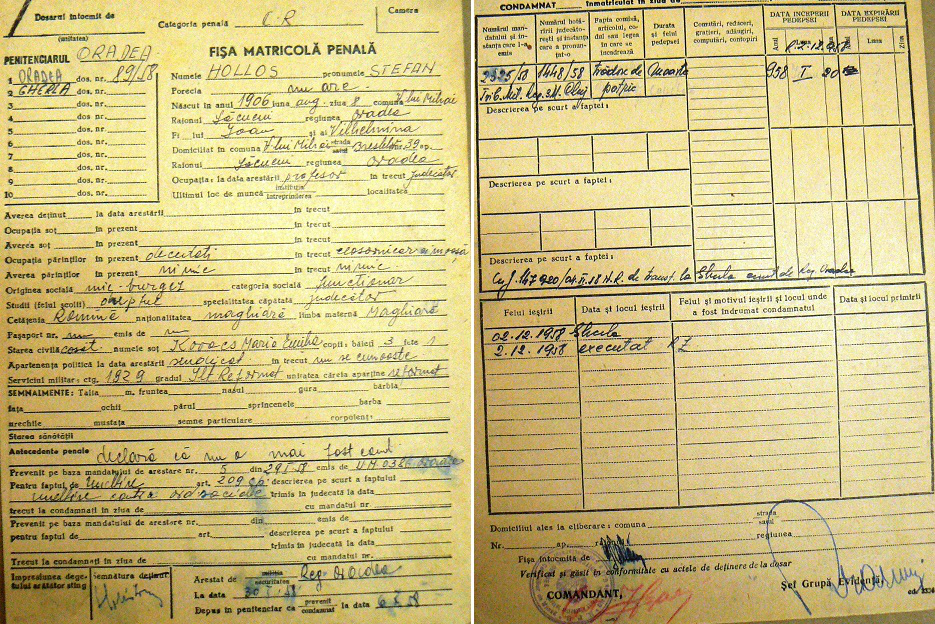 Dosarul întocmit de
Categoria penală C.R
Camera
(unitatea)
PENITENCIARUL ORADEA
FIȘA MATRICOLĂ PENALĂ
1 ORADEA dos. nr. 89/58
2 GHERLA dos. nr.
3 dos. nr.
4 dos. nr.
5 dos. nr.
6 dos. nr.
7 dos. nr.
8 dos. nr.
9 dos. nr.
10 dos. nr.
Numele HOLLOS pronumele STEFAN
Porecla nu are
Născut în anul 1906 luna aug. ziua 8 comuna V. lui Mihai
Raionul Săcueni regiunea Oradea
Fi lui Ioan și al Vilhelmina
Domiciliat în comuna V. lui Mihai strada satul nr. 39 ap.
Raionul Săcueni regiunea Oradea
Ocupația: la data arestării profesor în trecut judecător
Ultimul loc de muncă instituția întreprinderea localitatea
Averea deținut la data arestării în trecut
Ocupația soț în prezent în trecut
Averea soț în prezent în trecut
Ocupația părinților în prezent decedați în trecut
Averea părinților în prezent nimic în trecut nimic
Originea socială mic-burgez categoria socială funcționar
Studii (felul școlii) specialitatea căpătată judecător
Cetățenia Romînă naționalitatea maghiară limba maternă Maghiară
Pașaport nr. emis de
Starea civilă căsăt. numele soț Kovacs Maria Emilia copii: băieți 3 fete 1
Apartenența politică la data arestării sindicat în trecut nu se cunoaște
Serviciul militar: ctg. 1929 gradul Slt Reformat unitatea căreia aparține reformat
SEMNALMENTE: Talia m. fruntea nasul gura bărbia
fața ochii părul sprîncenele barba
urechile mustața semne particulare corpolent:
Starea sănătății
Antecedente penale declară că nu a mai fost cond
Prevenit pe baza mandatului de arestare nr. 5 din 29 I 58 emis de
Pentru faptul de Uneltire art. 209 cp. descrierea pe scurt a faptului
uneltire contra ord. sociale trimis în judecată la data
trecut la condamnați în ziua de cu mandatul nr.
Prevenit pe baza mandatului de arestare nr. din emis de
pentru faptul de art. descrierea pe scurt a faptului
trimis în judecată la data
Trecut la condamnați în ziua de cu mandatul nr.
Impresiunea degetului arătător stîng
Semnătura deținut
Arestat de miliția securitatea Reg. Oradea
La data 30 I 58
Depus în penitenciar ca prevenit condamnat la data
CONDAMNAT înmatriculat în ziua de
Numărul mandatului și instanța care l-a emis
Numărul hotărîrii judecătorești și instanța care a pronunțat-o
Fapta comisă, articolul, codul sau legea în care se încadrează
Durata și felul pedepsei
Comutări, reduceri, grațieri, adăugiri, computări, contopiri
DATA ÎNCEPERII PEDEPSEI
DATA EXPIRĂRII PEDEPSEI
Anul Luna Ziua
2.12.1958
/58 1448/58 trădare de Moarte 958 I 30
Trib. Mil. Reg. 3 M. Cluj patrie
Descrierea pe scurt a faptei:
Descrierea pe scurt a faptei:
Descrierea pe scurt a faptei:
de transf. la Gherla emit de Reg. Oradea
Felul ieșirii
Data și locul ieșirii
Felul și motivul ieșirii și locul unde a fost îndrumat condamnatul
Data și locul primirii
02.12.1958 Gherla
2.12.1958 executat
Domiciliul ales la eliberare: comuna strada satul
Nr. ap. raionul regiunea
Fișa întocmită de
Verificat și găsit în conformitate cu actele de deținere de la dosar
COMANDANT,
Șef Grupă Evidență,